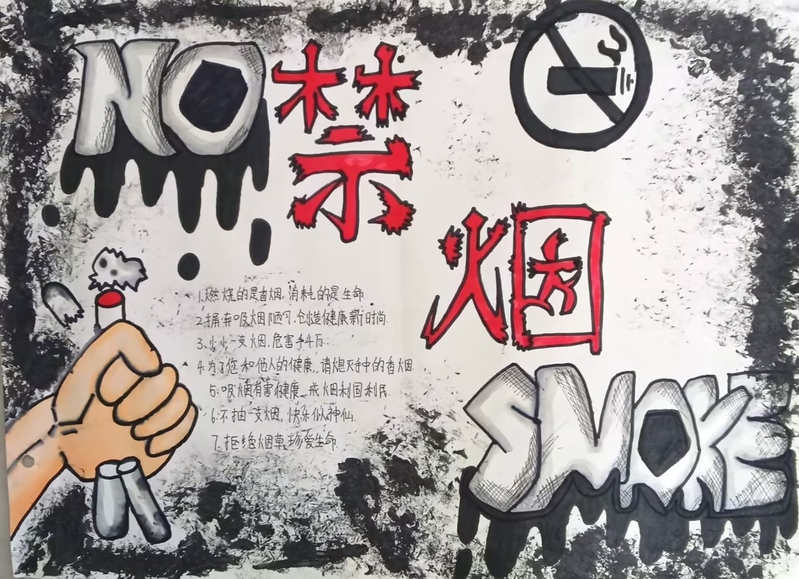 NO
禁
烟
1.燃烧的是香烟,消耗的是生命.
2.摒弃吸烟陋习,创造健康新时尚.
3.小小一支烟,危害千千万.
4.为了您和他人的健康,请熄灭手中的香烟.
5.吸烟有害健康,戒烟利国利民.
6.不抽一支烟,快乐似神仙.
7.拒绝烟草,珍爱生命.
SMOKE